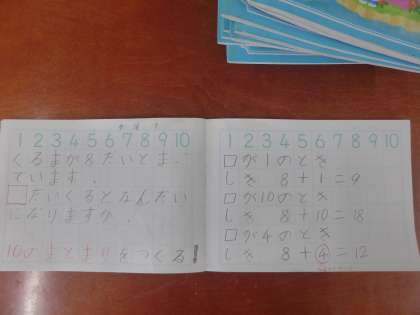 1 2 3 4 5 6 7 8 9 10
くるまが8だいとまっ
ています。
□だいくるとなんだい
になりますか。
10のまとまりをつくる!
1 2 3 4 5 6 7 8 9 10
□が1のとき
しき 8+1=9
□が10のとき
しき 8+10=18
□が4のとき
しき 8+④=12